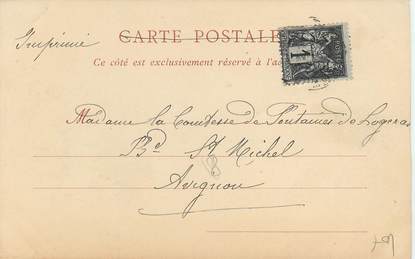 CARTE POSTALE
Imprimé
Ce côté est exclusivement réservé à l'ad
1
Madame la Comtesse de Fontaines de Logères
Bd St Michel
Avignon